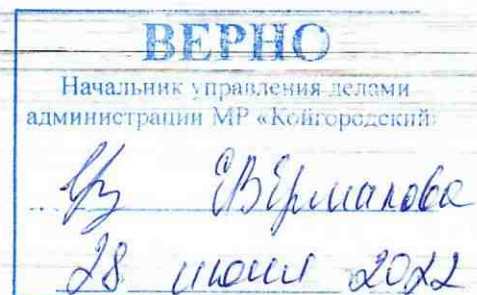 ВЕРНО
Начальник управления делами
администрации МР «Койгородский»
ЕВЕрмакова
28 2022